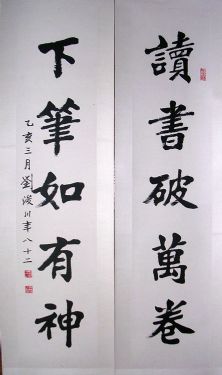 讀書破萬卷
下筆如有神
乙亥三月劉浚川年八十二